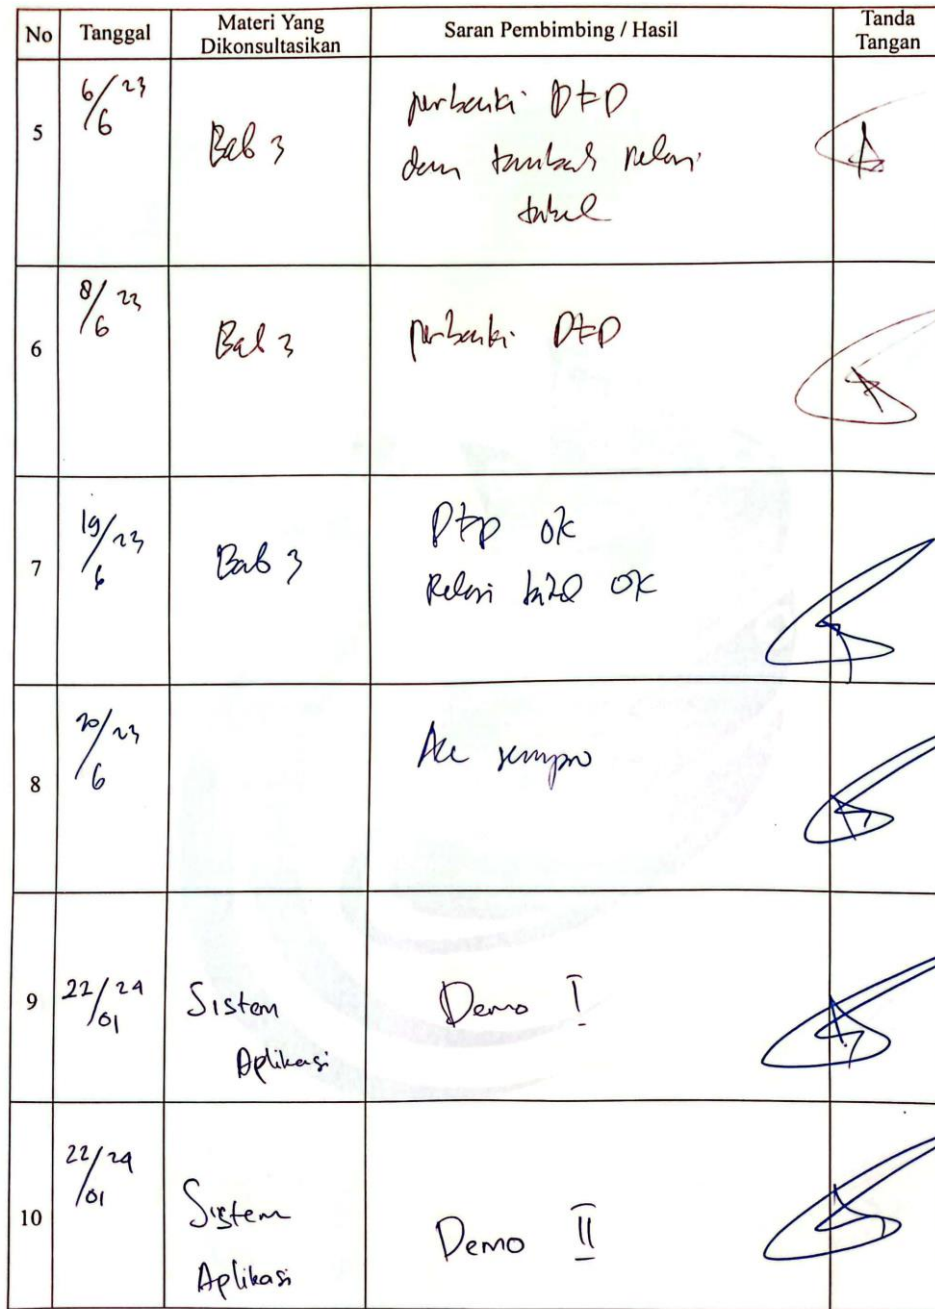 No Tanggal Materi Yang Dikonsultasikan Saran Pembimbing / Hasil Tanda Tangan
5 6/6 23 Bab 3 perbaiki DFD
dan tambah relasi
tabel
6 8/6 23 Bab 3 perbaiki DFD
7 19/6 23 Bab 3 DFD ok
Relasi tabel ok
8 20/6 23 Acc sempro
9 22/01 24 Sistem Demo I
Aplikasi
10 22/01 24 Sistem Demo II
Aplikasi